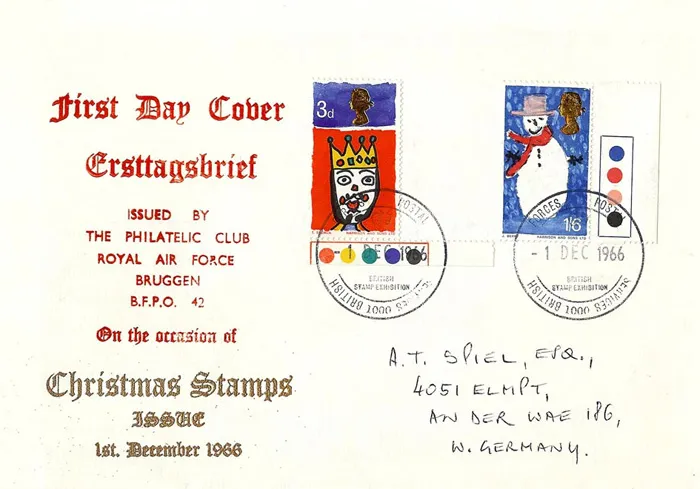 First Day Cover
Ersttagsbrief
ISSUED BY
THE PHILATELIC CLUB
ROYAL AIR FORCE
BRUGGEN
B.F.P.O. 42
On the occasion of
Christmas Stamps
ISSUE
1st. December 1966
3d
HARRISON AND SONS LTD
1/6
HARRISON AND SONS LTD
FORCES POSTAL SERVICES 1000 BRITISH
-1 DEC 1966
BRITISH
STAMP EXHIBITION
FORCES POSTAL SERVICES 1000 BRITISH
-1 DEC 1966
BRITISH
STAMP EXHIBITION
A.T. SPIEL, ESQ.,
4051 ELMPT,
AN DER WAE 186,
W. GERMANY.